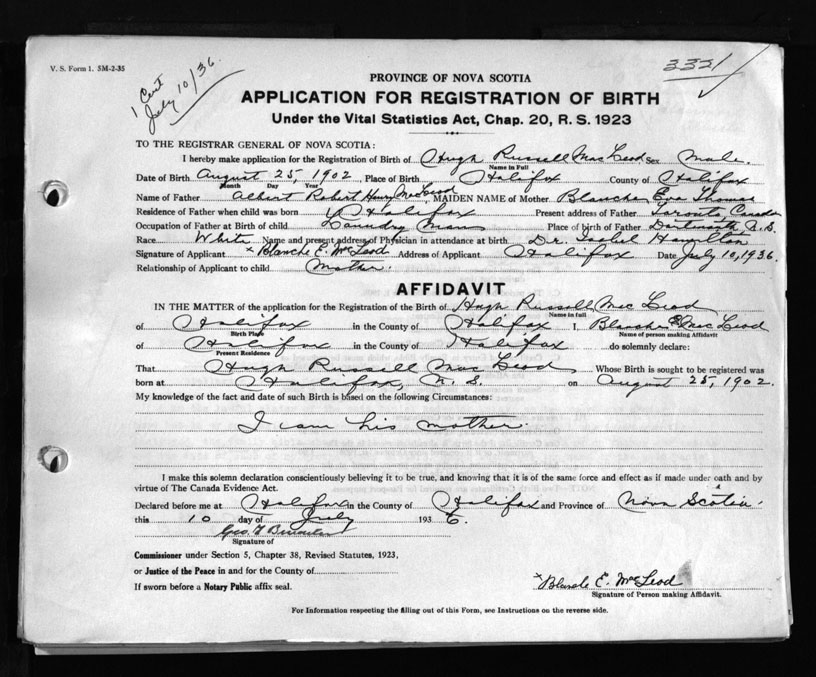 V. S. Form 1. 5M-2-35
1 Cert
July 10/36.
3321
PROVINCE OF NOVA SCOTIA
APPLICATION FOR REGISTRATION OF BIRTH
Under the Vital Statistics Act, Chap. 20, R. S. 1923
TO THE REGISTRAR GENERAL OF NOVA SCOTIA:
I hereby make application for the Registration of Birth of Hugh Russell MacLeod Sex Male.
Name in Full
Date of Birth August 25 1902, Place of Birth Halifax County of Halifax
Month Day Year
Name of Father Albert Robert Henry MacLeod, MAIDEN NAME of Mother Blanche Eva Thomas
Residence of Father when child was born Halifax Present address of Father Toronto, Canada
Occupation of Father at Birth of child Laundry Man Place of birth of Father Dartmouth N.S.
Race White Name and present address of Physician in attendance at birth Dr. Isabel Hamilton
Signature of Applicant x Blanche E. McLeod Address of Applicant Halifax Date July 10, 1936.
Relationship of Applicant to child Mother.
AFFIDAVIT
IN THE MATTER of the application for the Registration of the Birth of Hugh Russell MacLeod
Name in full
of Halifax in the County of Halifax I, Blanche E MacLeod
Birth Place Name of person making Affidavit
of Halifax in the County of Halifax do solemnly declare:
Present Residence
That Hugh Russell MacLeod Whose Birth is sought to be registered was
born at Halifax, N. S. on August 25, 1902.
My knowledge of the fact and date of such Birth is based on the following Circumstances:
I am his mother.
I make this solemn declaration conscientiously believing it to be true, and knowing that it is of the same force and effect as if made under oath and by
virtue of The Canada Evidence Act.
Declared before me at Halifax in the County of Halifax and Province of Nova Scotia.
this 10 day of July 1936.
Geo.
Signature of
Commissioner under Section 5, Chapter 38, Revised Statutes, 1923,
or Justice of the Peace in and for the County of
If sworn before a Notary Public affix seal.
x Blanche E. McLeod
Signature of Person making Affidavit.
For Information respecting the filling out of this Form, see Instructions on the reverse side.